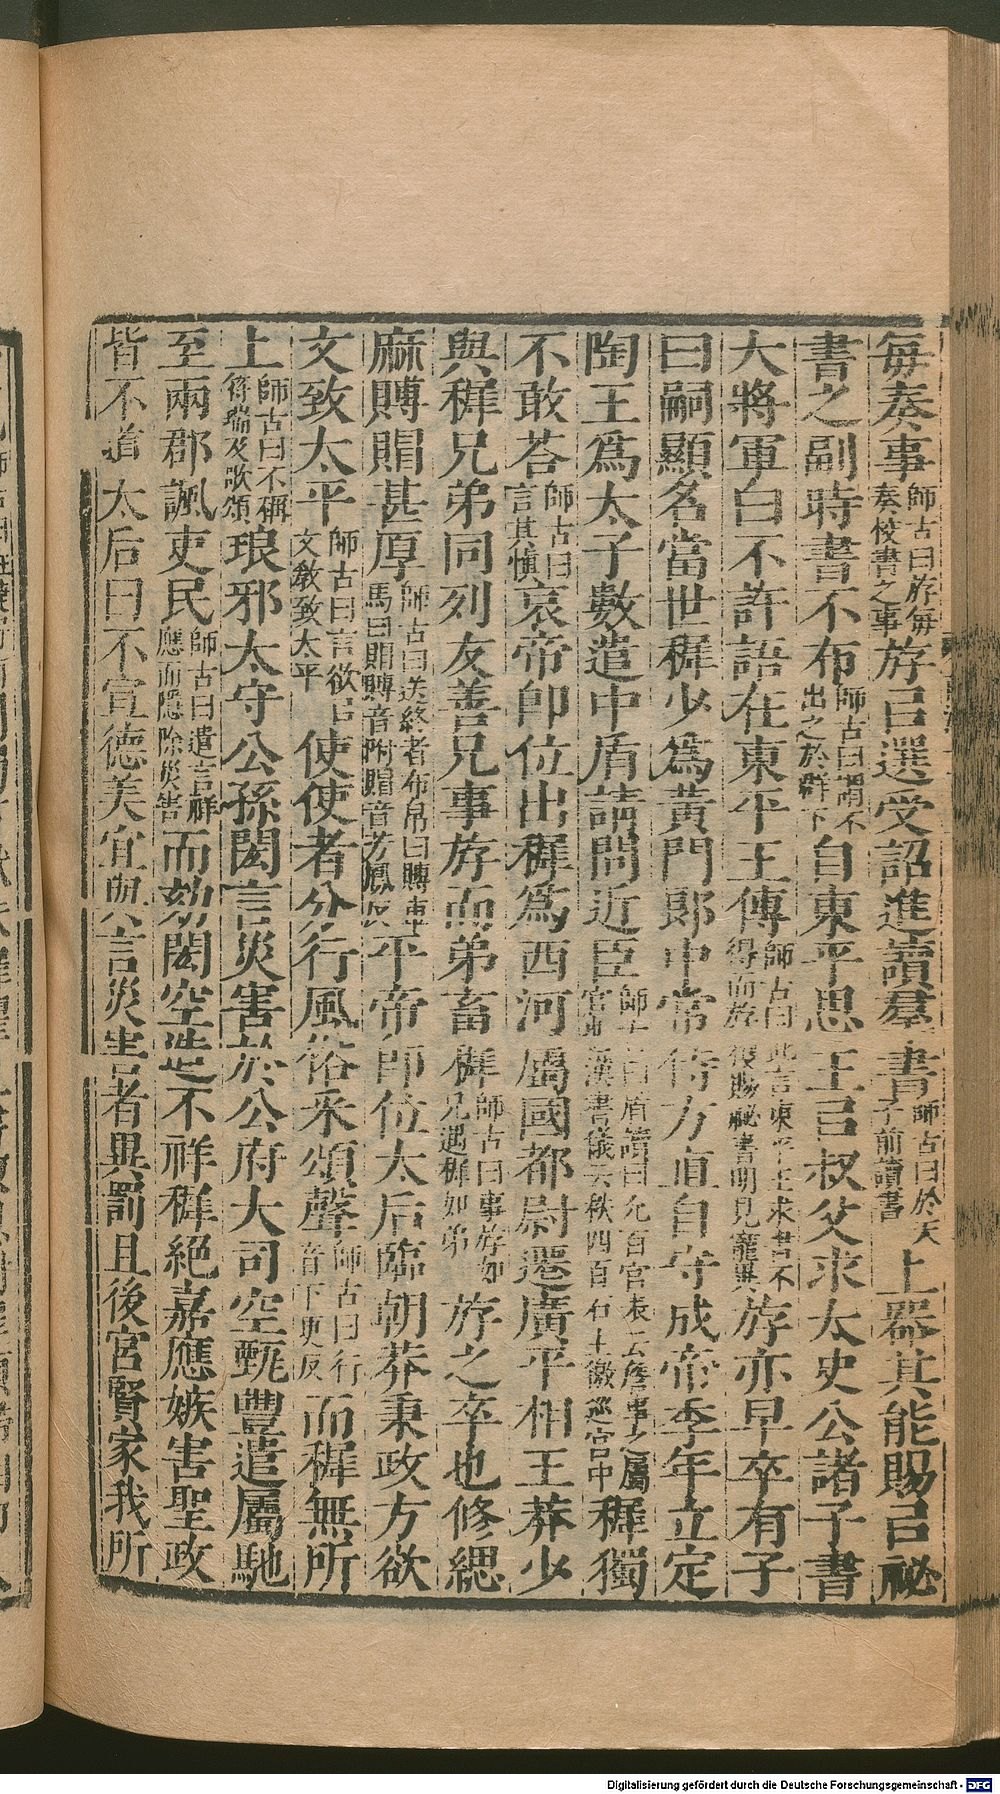 每奏事師古曰斿每奏校書之事斿㠯選受詔進讀羣書師古曰於天子前讀書上器其能賜㠯祕
書之副時書不布師古曰謂不出之於群下自東平思王㠯叔父求太史公諸子書
大將軍白不許語在東平王傳師古曰此言東平王求書不得而斿獲賜祕書明見寵異斿亦早卒有子
曰嗣顯名當世穉少爲黃門郎中常侍方直自守成帝季年立定
陶王爲太子數遣中盾請問近臣師古曰盾讀曰允百官表云詹事之屬官也漢書儀云秩四百石主徼巡宮中穉獨
不敢荅師古曰言其愼哀帝卽位出穉爲西河屬國都尉遷廣平相王莽少
與穉兄弟同列友善兄事斿而弟畜穉師古曰事斿如兄遇穉如弟斿之卒也修緦
麻賻賵甚厚師古曰送終者布帛曰賻車馬曰賵賻音附賵音芳鳳反平帝卽位太后臨朝莽秉政方欲
文致太平師古曰言欲㠯文敎致太平使使者分行風俗采頌聲師古曰行音下更反而穉無所
上師古曰不稱符瑞及歌頌琅邪太守公孫閎言災害於公府大司空甄豐遣屬馳
至兩郡諷吏民師古曰遣言祥應而隱除災害而劾閎空造不祥穉絕嘉應嫉害聖政
皆不道太后曰不宣德美宜與言災害者異罰且後宮賢家我所
Digitalisierung gefördert durch die Deutsche Forschungsgemeinschaft - DFG